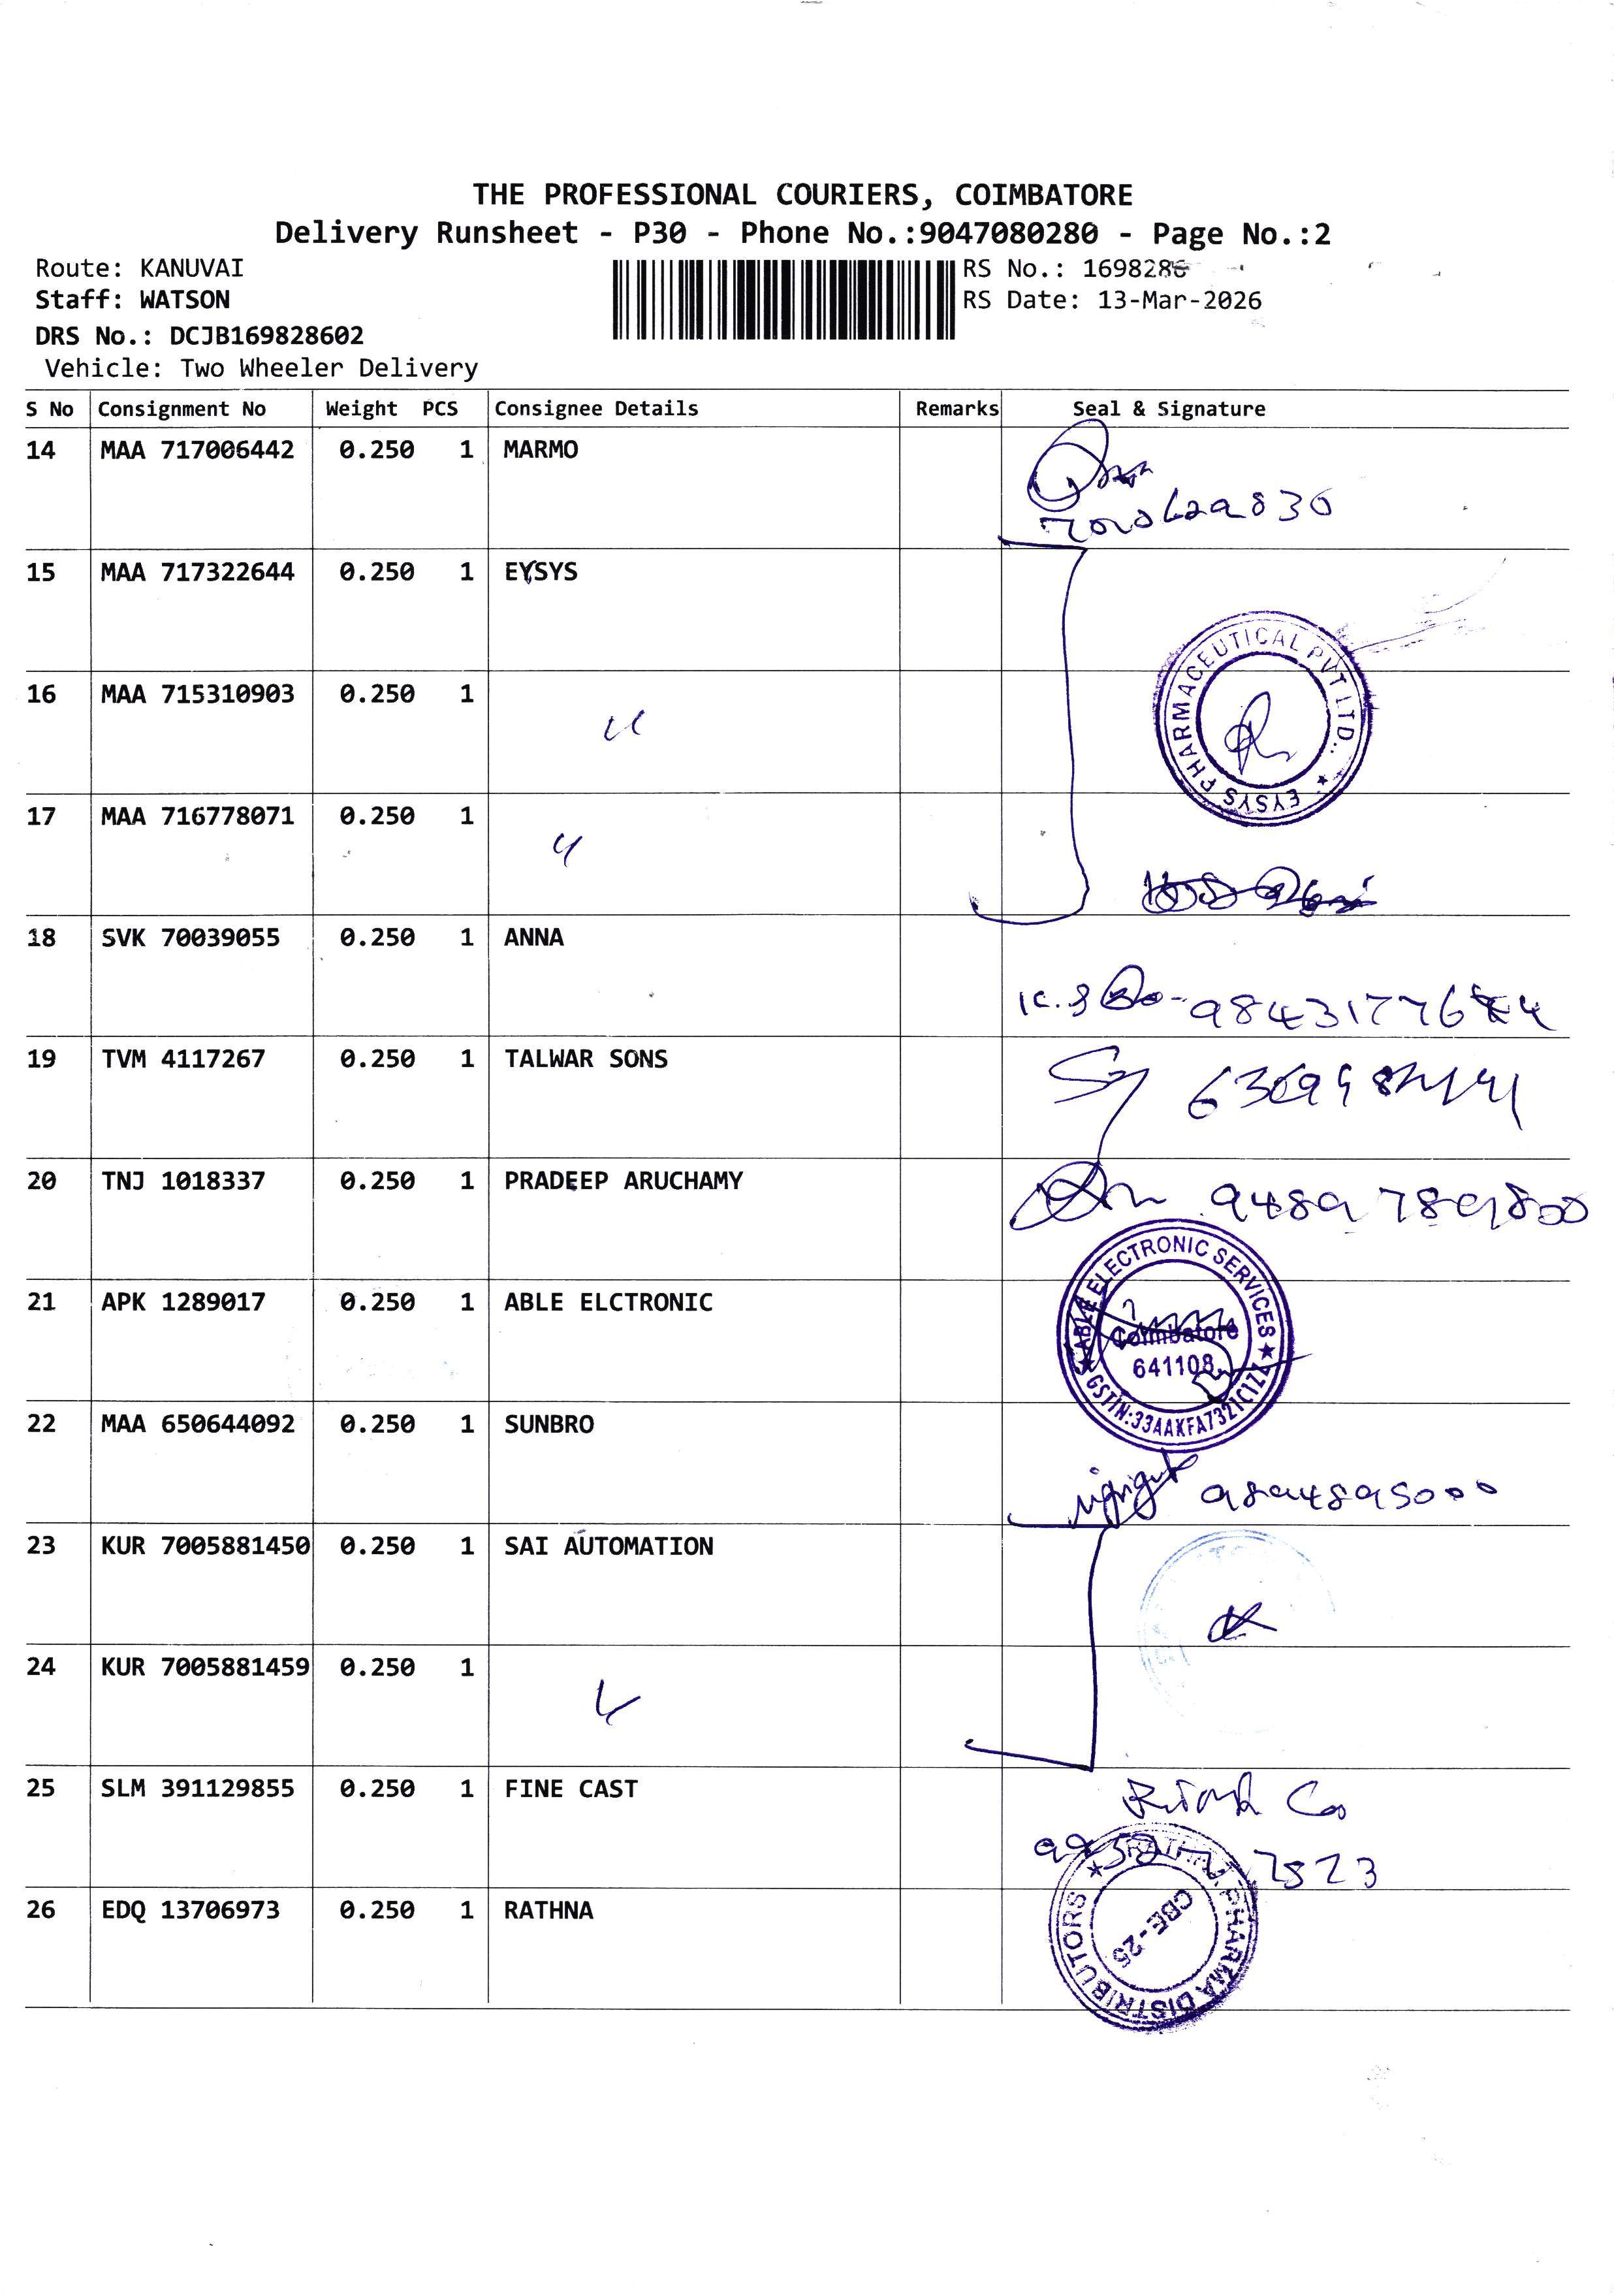 THE PROFESSIONAL COURIERS, COIMBATORE
Delivery Runsheet - P30 - Phone No.:9047080280 - Page No.:2
Route: KANUVAI
RS No.: 1698286
Staff: WATSON
RS Date: 13-Mar-2026
DRS No.: DCJB169828602
Vehicle: Two Wheeler Delivery
S No Consignment No Weight PCS Consignee Details Remarks Seal & Signature
14 MAA 717006442 0.250 1 MARMO
15 MAA 717322644 0.250 1 EYSYS
EYSYS PHARMACEUTICAL PVT LTD.,
16 MAA 715310903 0.250 1
17 MAA 716778071 0.250 1
18 SVK 70039055 0.250 1 ANNA
19 TVM 4117267 0.250 1 TALWAR SONS
20 TNJ 1018337 0.250 1 PRADEEP ARUCHAMY
9489789800
21 APK 1289017 0.250 1 ABLE ELCTRONIC
ABLE ELECTRONIC SERVICES
Coimbatore
641108
GSTIN:33AAKFA7321C1ZZ
22 MAA 650644092 0.250 1 SUNBRO
9894895000
23 KUR 7005881450 0.250 1 SAI AUTOMATION
24 KUR 7005881459 0.250 1
25 SLM 391129855 0.250 1 FINE CAST
26 EDQ 13706973 0.250 1 RATHNA
RATHNA PHARMA DISTRIBUTORS
CBE-25